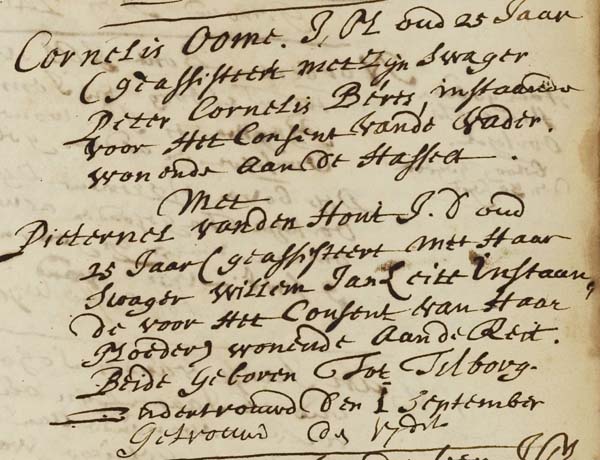 Cornelis Oome. J, M oud 25 Jaar
(geassisteert met Zijn Swager
Peter Cornelis instaande
voor Het Consent vande vader.
wonende aan De Hasselt.
Met
Pieternel vanden Hout J. D oud
25 Jaar (geassisteert met Haar
Swager willem Jan instaan,
de voor Het Consent van Haar
Moeder) wonende aan de Reit.
Beide Geboren Tot Tilborg.
ondertrouwd Den 1 September
Getrouwd den 17 dito